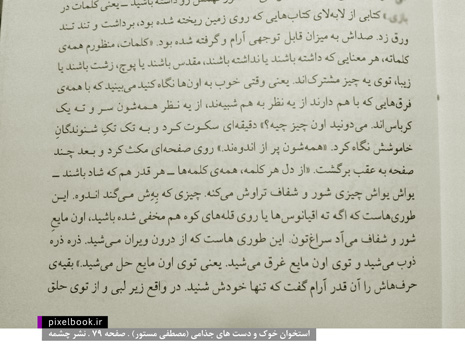 باشید ــ یعنی کلمات در
بازی.» کتابی از لابه‌لای کتاب‌هایی که روی زمین ریخته شده بود، برداشت و تند تند
ورق زد. صداش به میزان قابل توجهی آرام و گرفته شده بود. «کلمات، منظورم همه‌ی
کلماته، هر معنایی که داشته باشند یا نداشته باشند، مقدس باشند یا پوچ، زشت باشند یا
زیبا، توی یه چیز مشترک‌اند. یعنی وقتی خوب به اون‌ها نگاه کنید می‌بینید که با همه‌ی
فرق‌هایی که با هم دارند از یه نظر به هم شبیه‌ند، از یه نظر همه‌شون سر و ته یک
کرباس‌اند. می‌دونید اون چیز چیه؟» دقیقه‌ای سکوت کرد و به تک تکِ شنوندگانِ
خاموشش نگاه کرد. «همه‌شون پر از اندوه‌ند.» روی صفحه‌ای مکث کرد و بعد چند
صفحه به عقب برگشت. «از دل هر کلمه، همه‌ی کلمه‌ها ــ هر قدر هم که شاد باشند ــ
یواش یواش چیزی شور و شفاف تراوش می‌کنه. چیزی که بِهِش می‌گند اندوه. این
طوری‌هاست که اگه ته اقیانوس‌ها یا روی قله‌های کوه هم مخفی شده باشید، اون مایعِ
شور و شفاف می‌آد سراغ‌تون. این طوری هاست که از درون ویران می‌شید. ذره ذره
ذوب می‌شید و توی اون مایع غرق می‌شید. یعنی توی اون مایع حل می‌شید.» بقیه‌ی
حرف‌هاش را آن قدر آرام گفت که تنها خودش شنید. در واقع زیر لبی و از توی حلق
pixelbook.ir
استخوان خوک و دست های جذامی (مصطفی مستور) . صفحه ۷۹ . نشر چشمه